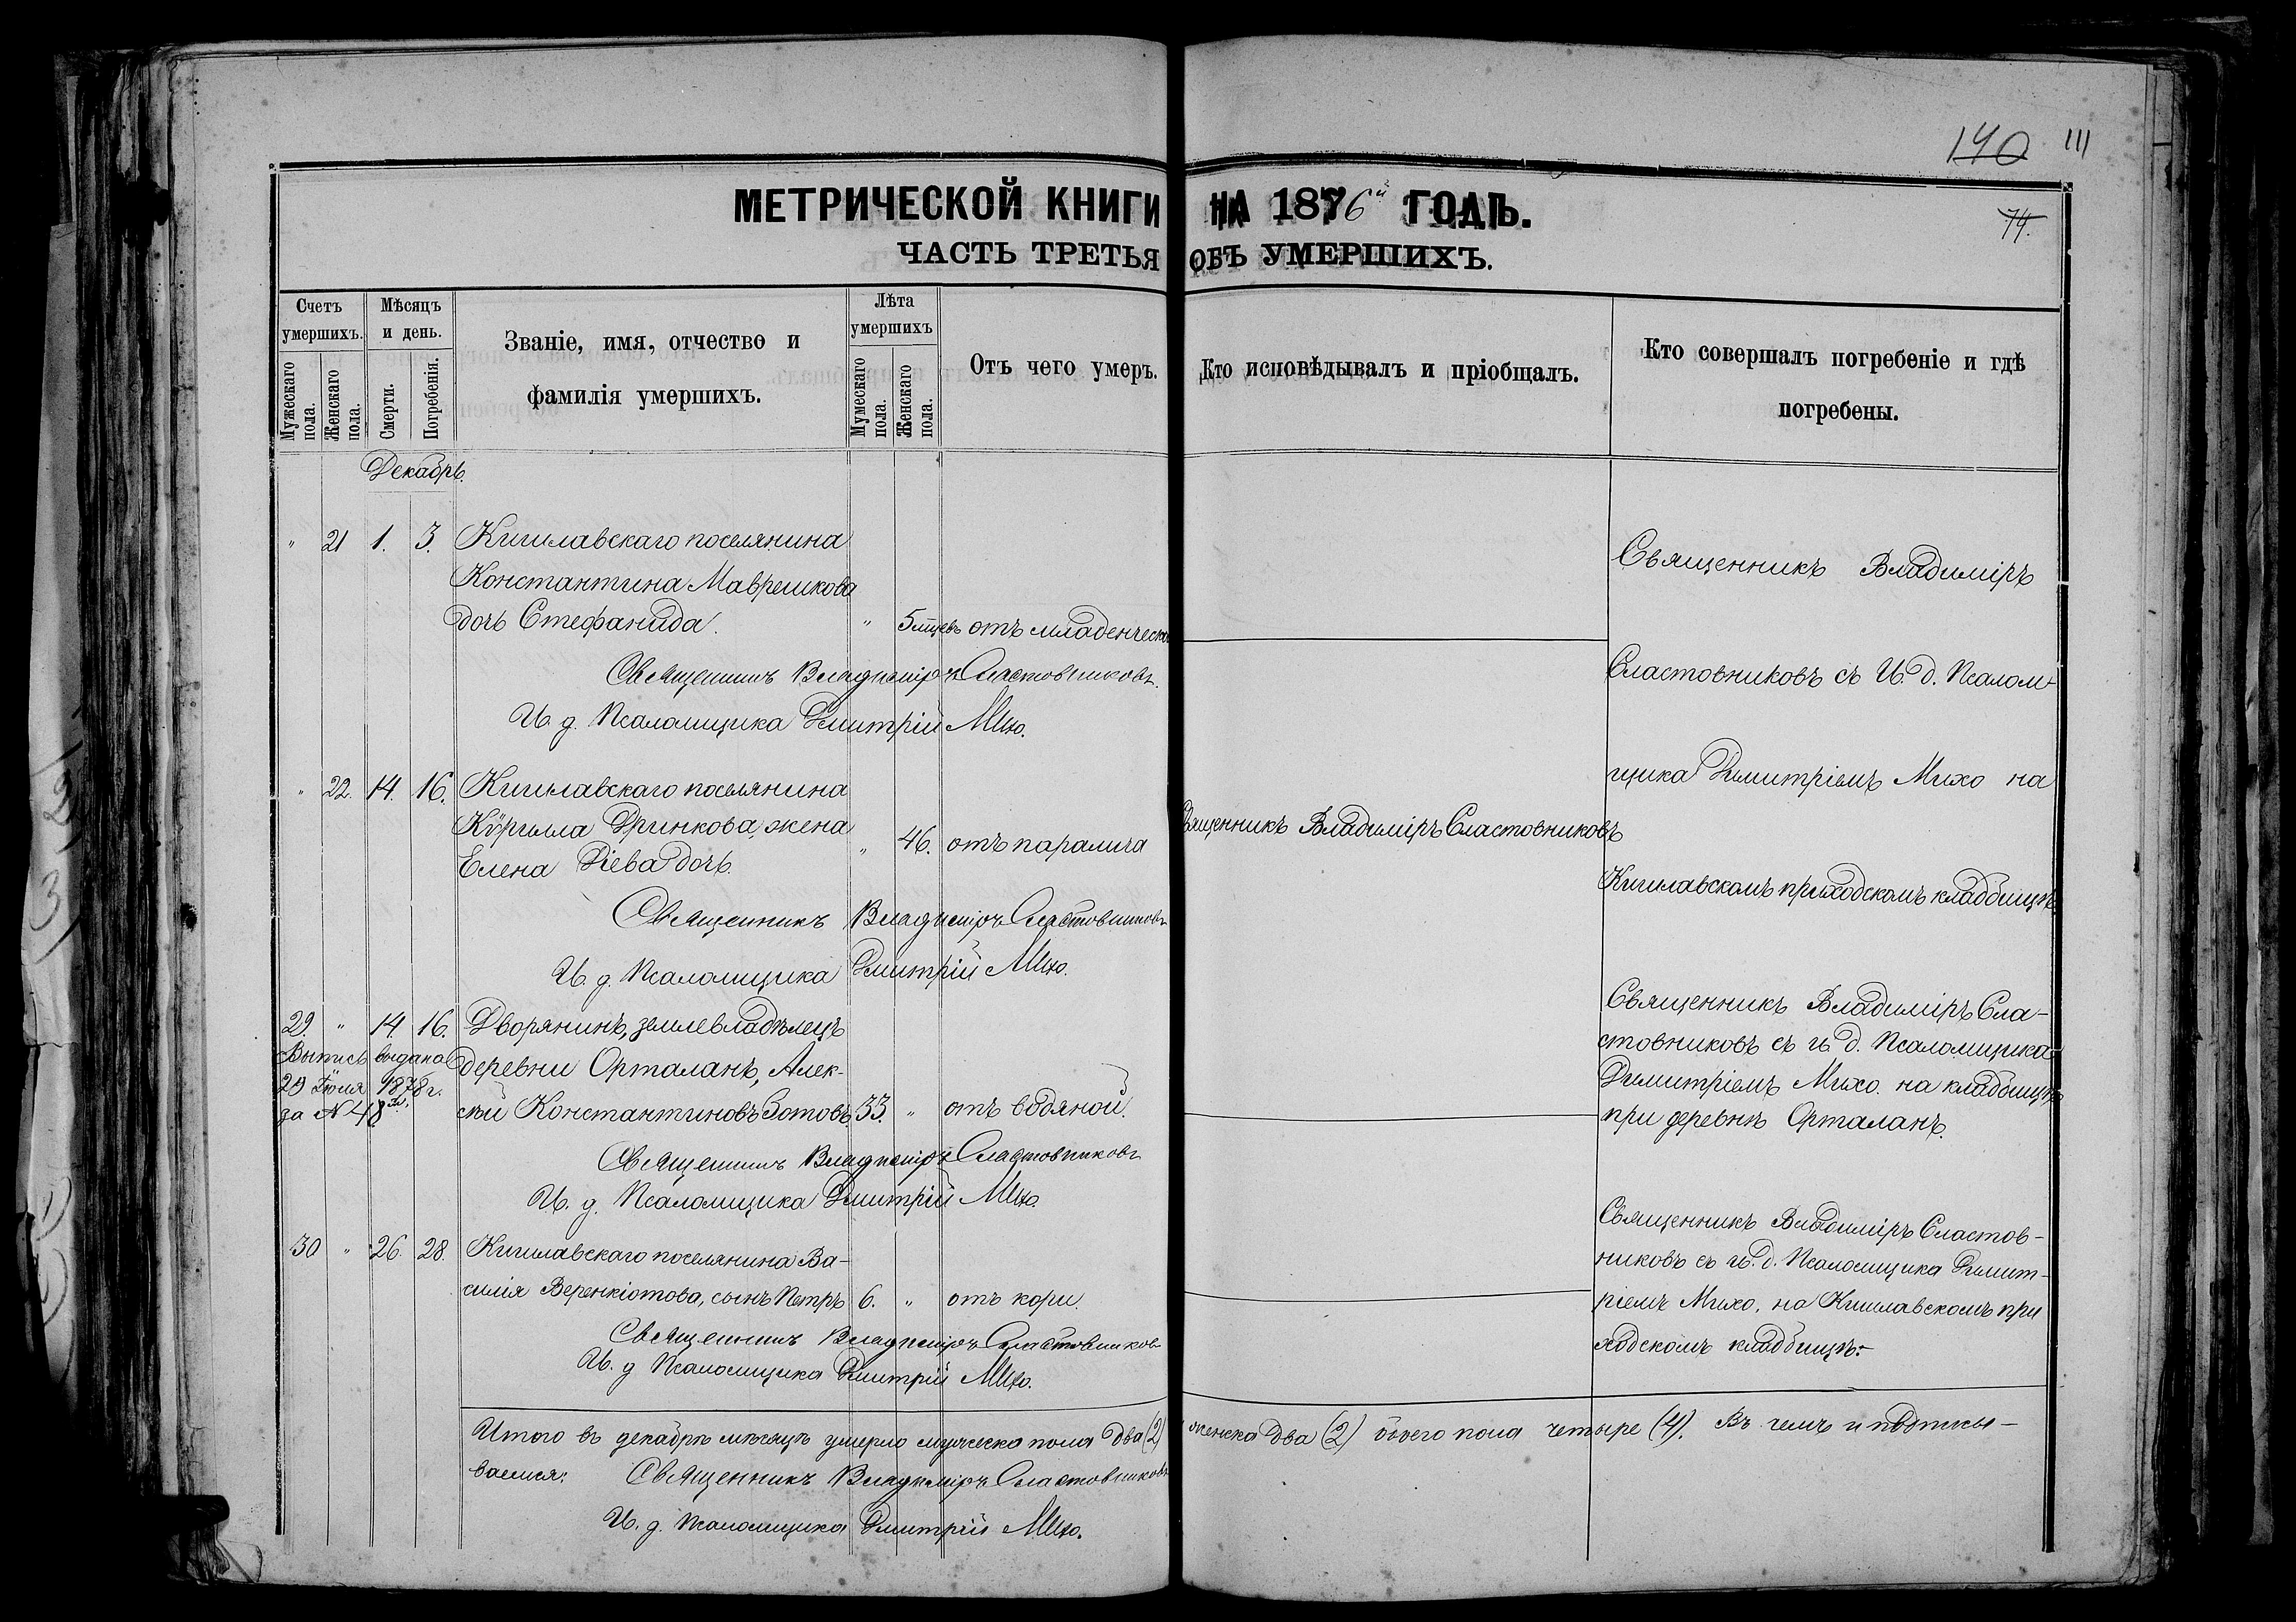 140 111
МЕТРИЧЕСКОЙ КНИГИ НА 1876й ГОДЪ.
74.
ЧАСТЬ ТРЕТЬЯ ОБЪ УМЕРШИХЪ.
Счетъ умершихъ.
Мужескаго пола.
Женскаго пола.
Мѣсяцъ и день.
Смерти.
Погребенія.
Званіе, имя, отчество и
фамилія умершихъ.
Лѣта умершихъ
Мужескаго пола.
Женскаго пола.
Отъ чего умеръ.
Кто исповѣдывалъ и пріобщалъ.
Кто совершалъ погребеніе и гдѣ
погребены.
Декабрь.
" 21 1. 3. Кишлавскаго поселянина
Константина Маврешкова
дочь Стефанида. " 5 мцевъ отъ младенческ
Священникъ Владиміръ Сластовниковъ.
И. д. Псаломщика Дмитрій Михо.
Священникъ Владиміръ
Сластовниковъ съ И. д. Псалом-
щика Димитріемъ Михо на
Кишлавскомъ приходскомъ кладбищѣ
" 22. 14. 16. Кишлавскаго поселянина
Кѵрилла Дринкова, жена
Елена Діева дочь. " 46. отъ паралича
Священникъ Владиміръ Сластовниковъ
Священникъ Владиміръ Сластовниковъ
И. д. Псаломщика Дмитрій Михо.
29. " 14. 16. Дворянинъ, землевладѣлецъ
деревни Орталанъ, Алек-
сѣй Константиновъ Зотовъ. 33. " отъ водяной.
Выпись выдана
29 Іюля 1878 г.
за № 48
Священникъ Владиміръ Сластовниковъ
И. д. Псаломщика Дмитрій Михо.
Священникъ Владиміръ Сла-
стовниковъ съ и. д. Псаломщика
Димитріемъ Михо. на кладбищѣ
при деревнѣ Орталанъ.
30 " 26. 28. Кишлавскаго поселянина Ва-
силія Веренкіотова, сынъ Петръ 6. " отъ кори.
Священникъ Владиміръ Сластовников
И. д Псаломщика Дмитрій Михо.
Священникъ Владиміръ Сластов-
никовъ съ и. д. Псаломщика Димит-
ріемъ Михо. на Кишлавскомъ при
ходскомъ кладбищѣ.-
Итого въ декабрѣ мѣсяцѣ умерло мужеска пола два (2) женска два (2) обоего пола четыре (4). Въ чемъ и подписы-
ваемся: Священникъ Владиміръ Сластовниковъ
И. д. Псаломщика Дмитрій Михо.